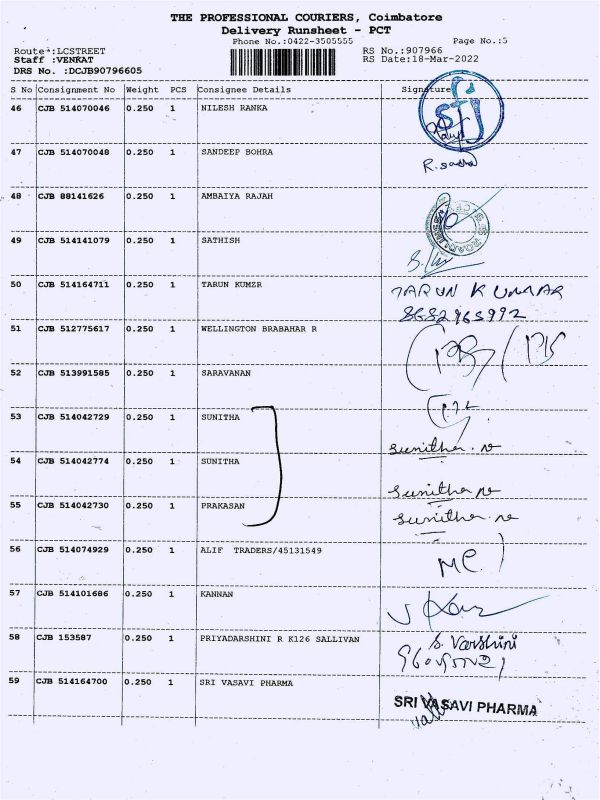 THE PROFESSIONAL COURIERS, Coimbatore
Delivery Runsheet - PCT
Phone No.:0422-3505555 Page No.:5
Route :LCSTREET RS No.:907966
Staff :VENKAT RS Date:18-Mar-2022
DRS No. :DCJB90796605
S No Consignment No Weight PCS Consignee Details Signature
46 CJB 514070046 0.250 1 NILESH RANKA
47 CJB 514070048 0.250 1 SANDEEP BOHRA
48 CJB 88141626 0.250 1 AMBAIYA RAJAH
49 CJB 514141079 0.250 1 SATHISH
50 CJB 514164711 0.250 1 TARUN KUMZR TARUN KUMAR
8682965992
51 CJB 512775617 0.250 1 WELLINGTON BRABAHAR R
52 CJB 513991585 0.250 1 SARAVANAN
53 CJB 514042729 0.250 1 SUNITHA sunitha
54 CJB 514042774 0.250 1 SUNITHA sunitha
55 CJB 514042730 0.250 1 PRAKASAN sunitha
56 CJB 514074929 0.250 1 ALIF TRADERS/45131549
57 CJB 514101686 0.250 1 KANNAN
58 CJB 153587 0.250 1 PRIYADARSHINI R K126 SALLIVAN S. Varshini
59 CJB 514164700 0.250 1 SRI VASAVI PHARMA SRI VASAVI PHARMA